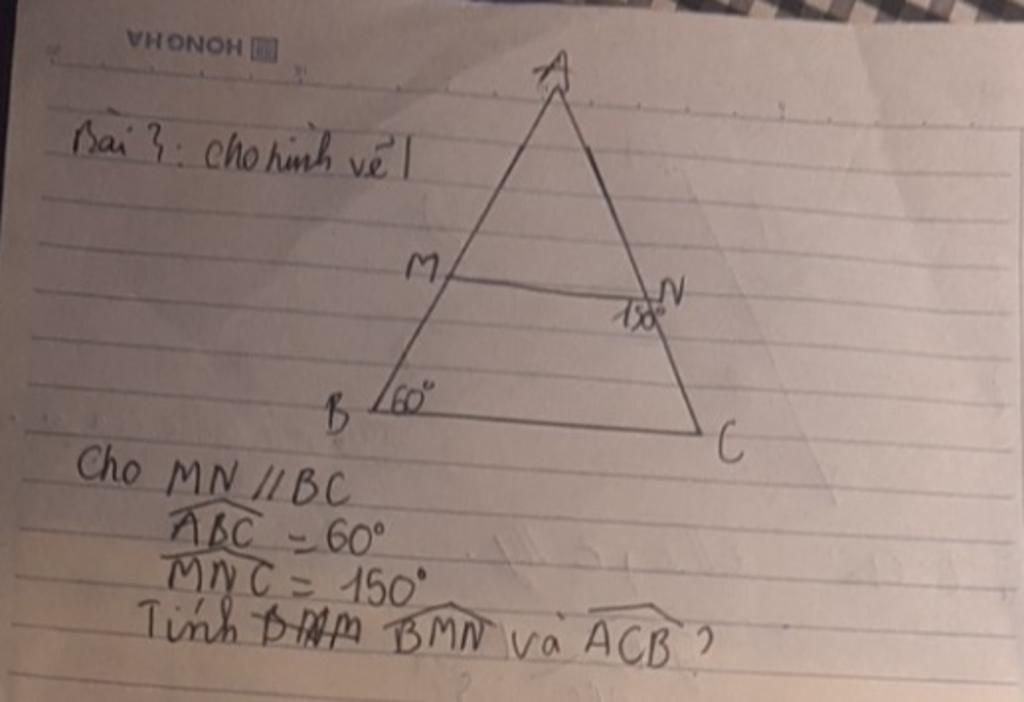 HONG HA
Bài 3: cho hình vẽ 1
A
M
N
150°
B
60°
C
Cho MN // BC
ABC = 60°
MNC = 150°
Tính BMN và ACB?